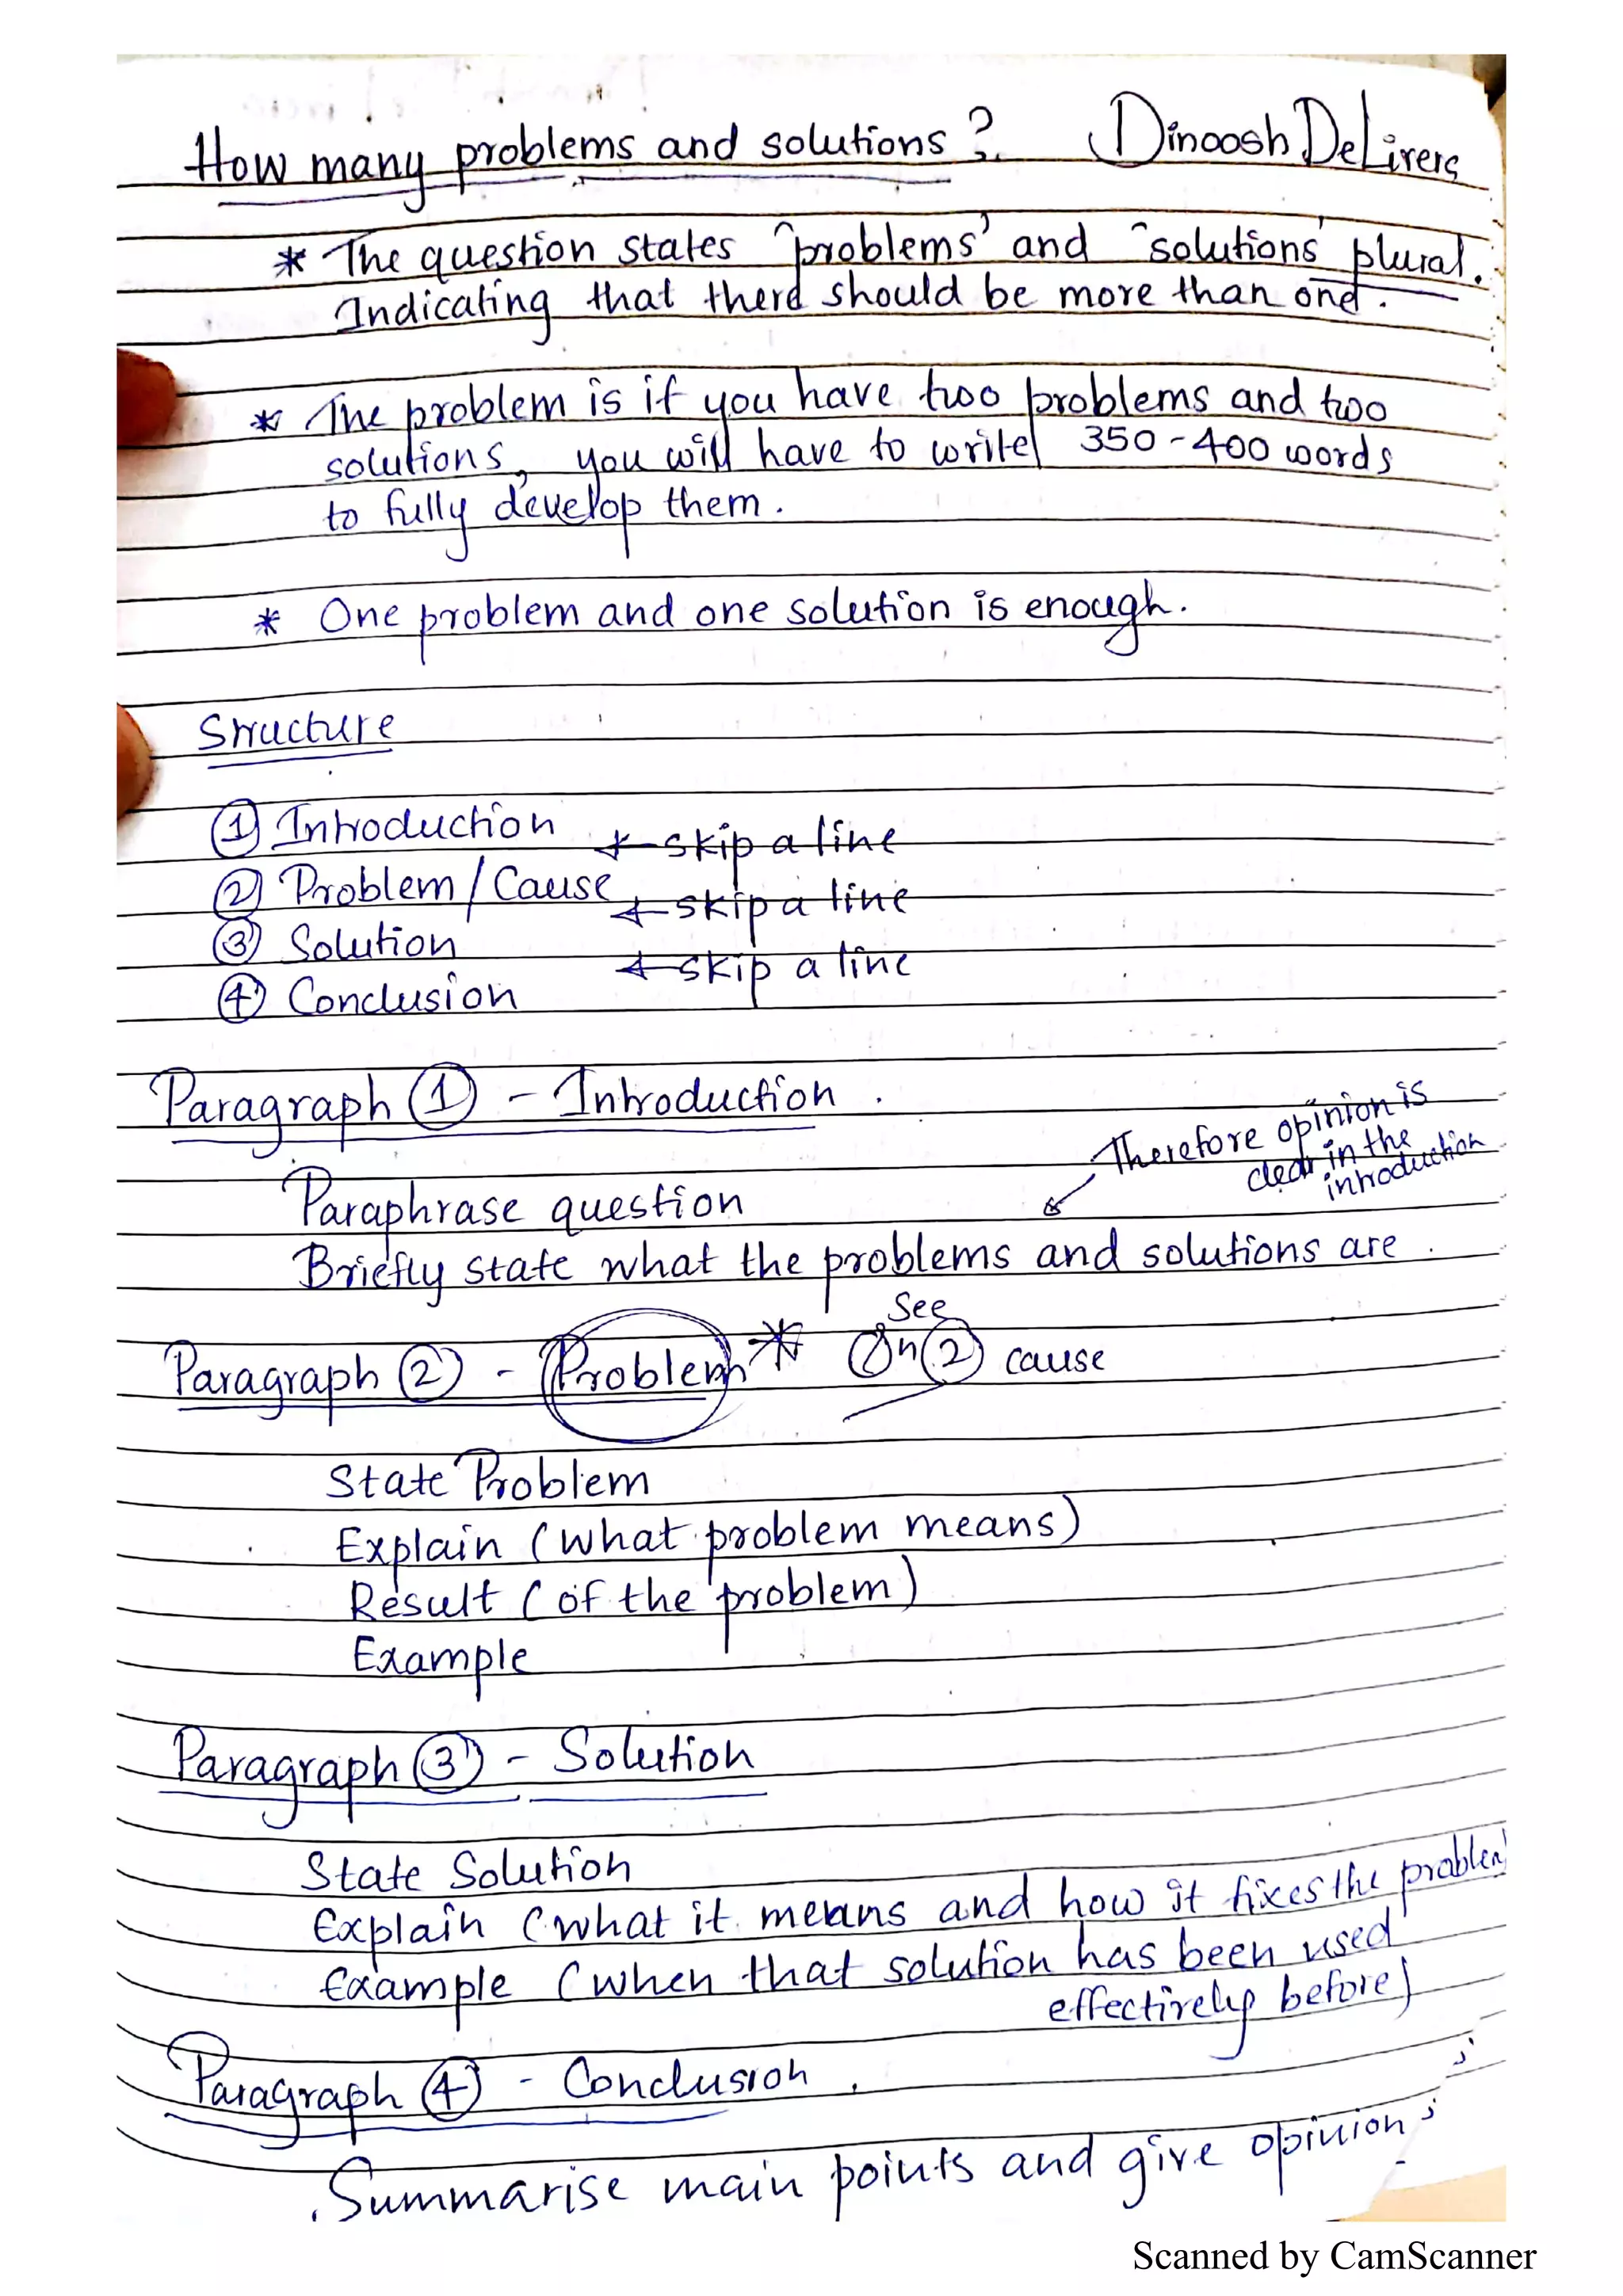 How many problems and solutions? Dinoosh DeLivers
* The question states "problems" and "solutions" plural.
Indicating that there should be more than one.
* The problem is if you have two problems and two
solutions, you will have to write 350-400 words
to fully develop them.
* One problem and one solution is enough.
Structure
① Introduction
← skip a line
② Problem / Cause
← skip a line
③ Solution
← skip a line
④ Conclusion
Paragraph ① - Introduction.
Therefore opinion is
clear in the
introduction
Paraphrase question
Briefly state what the problems and solutions are.
See
Paragraph ② - Problem * On ② cause
State Problem
Explain (what problem means)
Result (of the problem)
Example
Paragraph ③ - Solution
State Solution
Explain (what it means and how it fixes the problem)
Example (when that solution has been used
effectively before)
Paragraph ④ - Conclusion.
Summarise main points and give opinion
Scanned by CamScanner